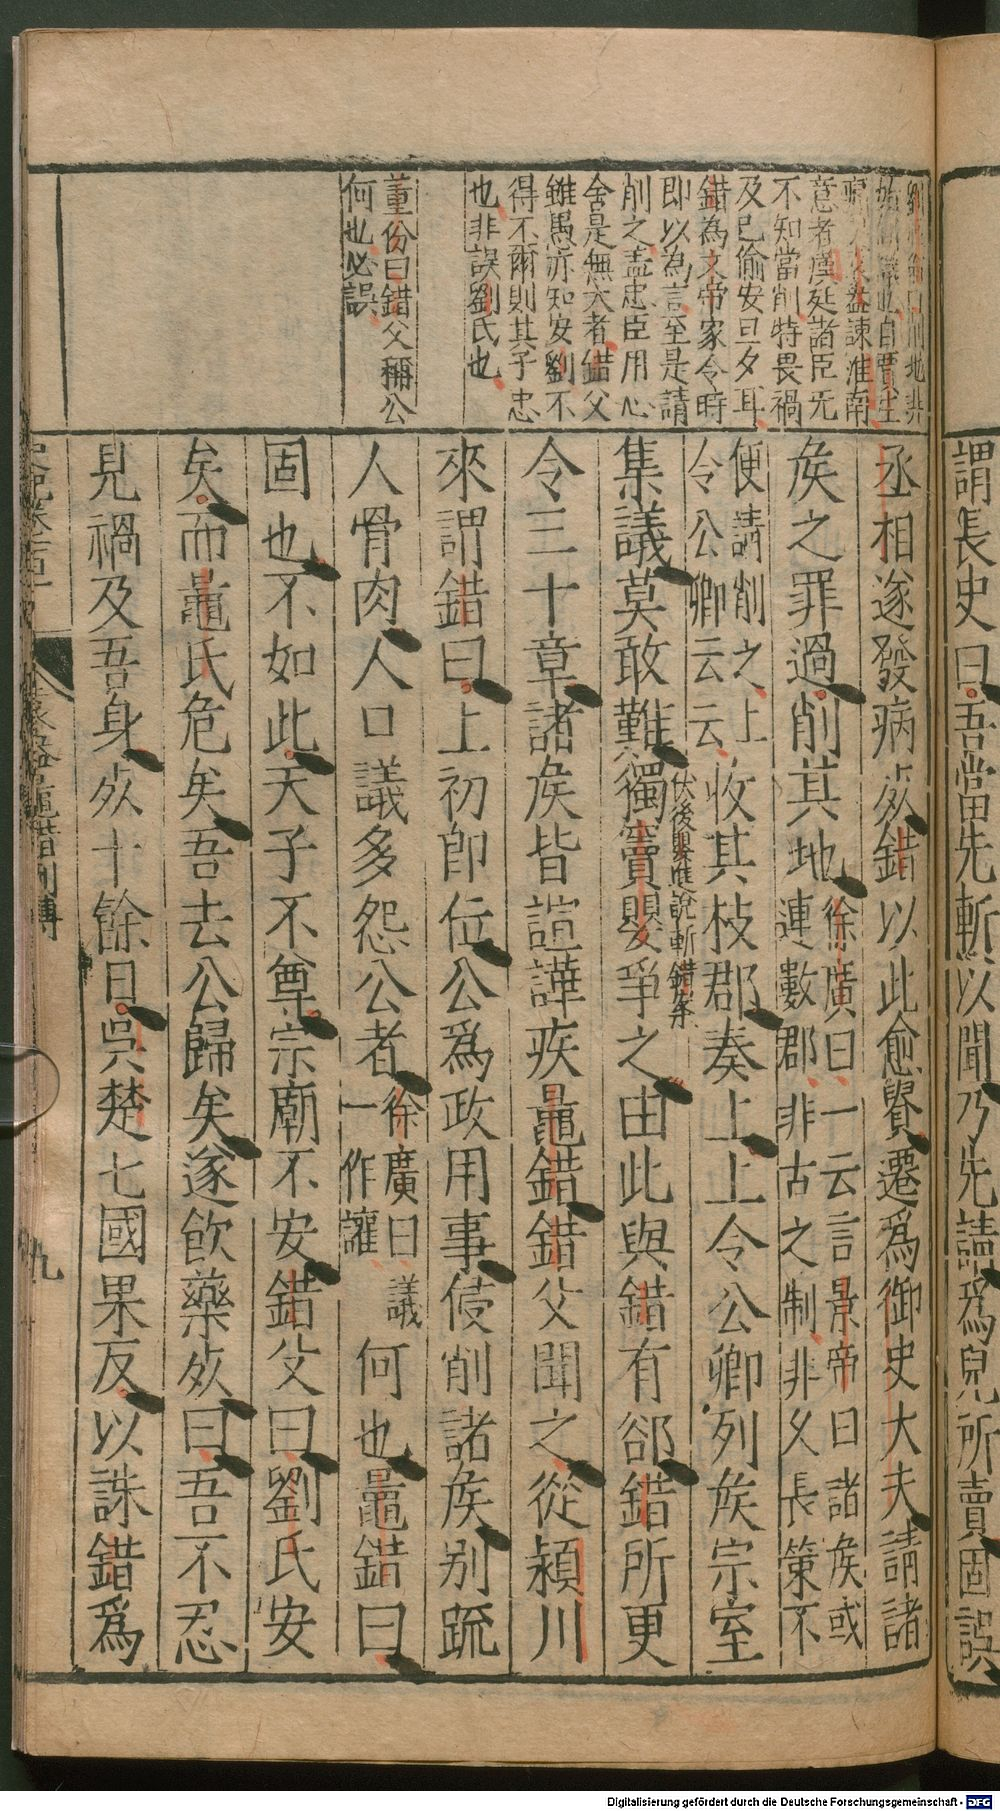 謂長史曰吾當先斬以聞乃先請爲兒所賣固誤
丞相遂發病死錯以此愈貴遷爲御史大夫請諸
矦之罪過削其地徐廣曰一云言景帝曰諸矦或連數郡非古之制非久長策不
便請削之上令公卿云云收其枝郡奏上上令公卿列矦宗室
集議莫敢難獨竇嬰爭之由此與錯有郤錯所更
伏後嬰進說斬錯案
令三十章諸矦皆諠譁疾鼂錯錯父聞之從潁川
來謂錯曰上初卽位公爲政用事侵削諸矦别疏
人骨肉人口議多怨公者徐廣曰議一作讓何也鼂錯曰
固也不如此天子不尊宗廟不安錯父曰劉氏安
矣而鼂氏危矣吾去公歸矣遂飮藥死曰吾不忍
見禍及吾身死十餘日吳楚七國果反以誅錯爲
地非
自賈生
益諫淮南
意者漢廷諸臣无
不知當削特畏禍
及已偷安旦夕耳
錯為文帝家令時
即以為言至是請
削之盖忠臣用心
舍是無大者錯父
雖愚亦知安劉不
得不爾則其子忠
也非誤劉氏也
董份曰錯父稱公
何也必誤
九
Digitalisierung gefördert durch die Deutsche Forschungsgemeinschaft - DFG